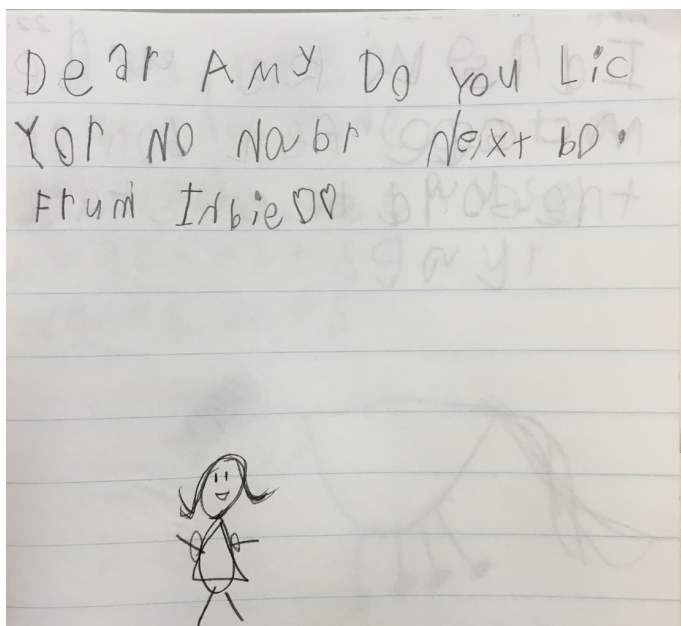 Dear Amy Do you Lic
Yor No Nabr Next bD.
Frum Indie♡♡